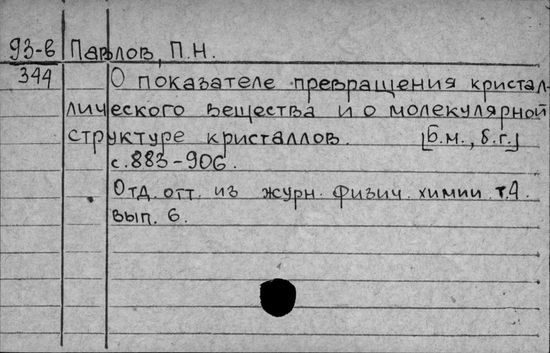 93-в Павлов, П.Н.
344 О показателе превращения кристал-
лического вещества и о молекулярной
структуре кристаллов. [б.м., б.г.]
с. 883-906.
Отд. отт. из журн. физич. химии т.4.
вып. 6.